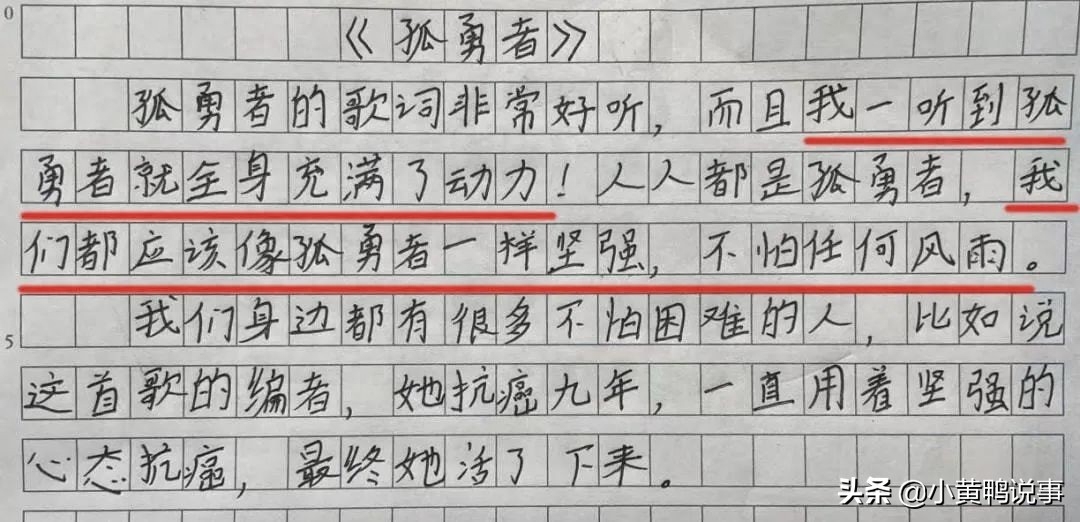 0
《孤勇者》
孤勇者的歌词非常好听，而且我一听到孤
勇者就全身充满了动力！人人都是孤勇者，我
们都应该像孤勇者一样坚强，不怕任何风雨。
我们身边都有很多不怕困难的人，比如说
5
这首歌的编者，她抗癌九年，一直用着坚强的
心态抗癌，最终她活了下来。
头条 @小黄鸭说事